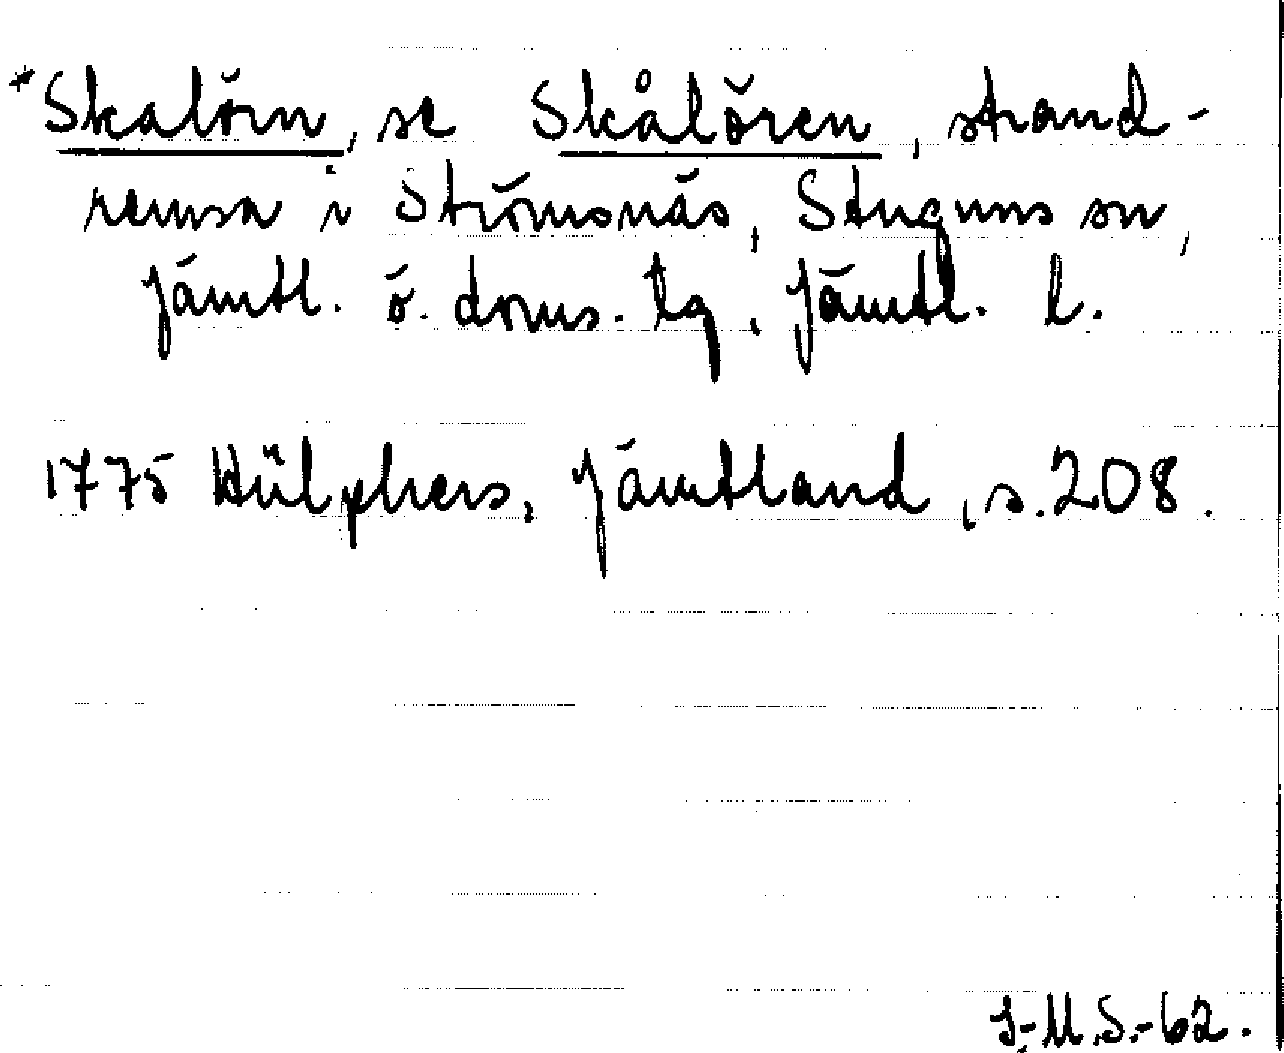 *Skalörn, se Skålören, strand-
remsa i Strömsnäs, Stuguns sn,
Jämtl. ö. doms. tg, Jämtl. l.
1775 Hülphers, Jämtland, s. 208.
I-M.S.-62.